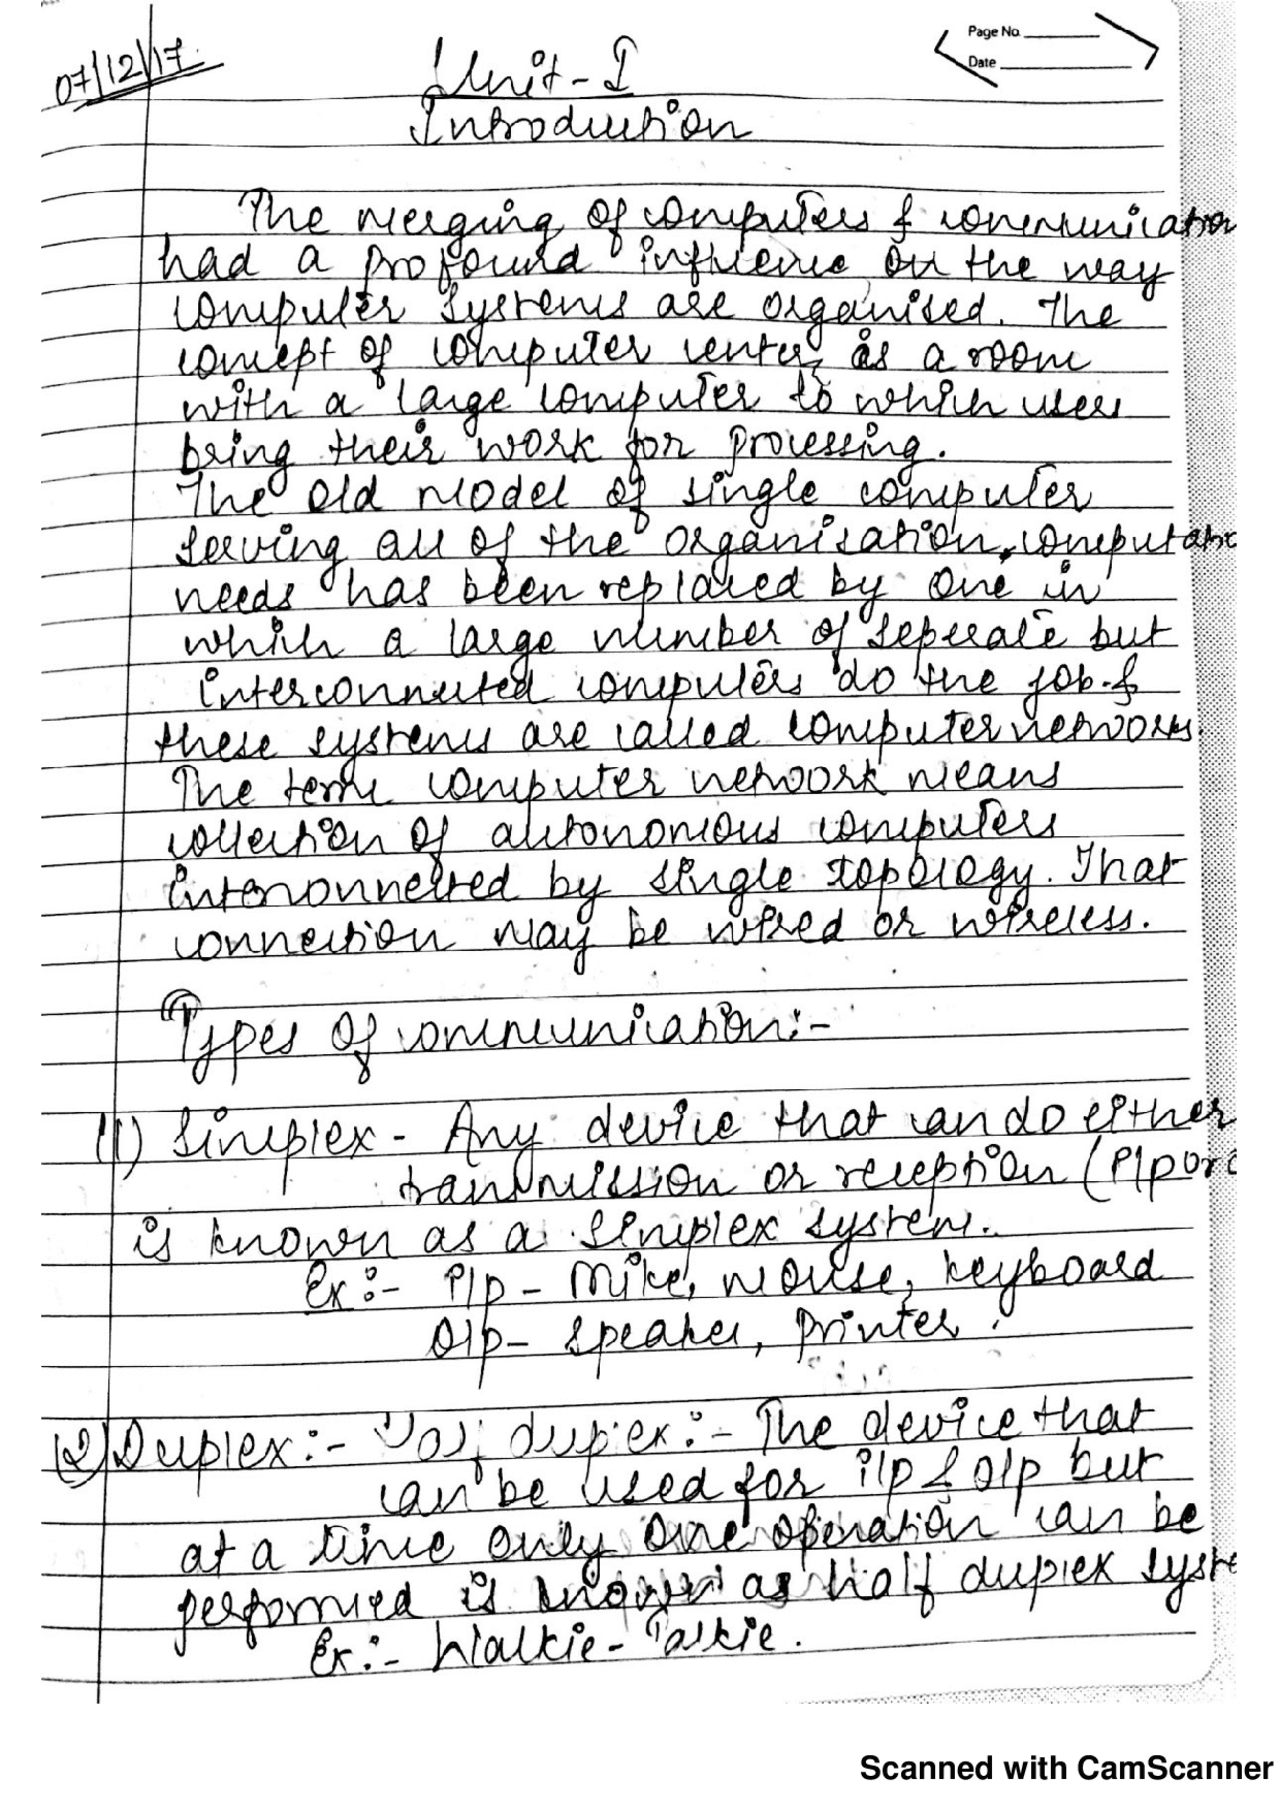 Page No.
Date
07/12/17
Unit-I
Introduction
The merging of computers & communication
had a profound influence on the way
computer systems are organised. The
concept of computer center, is a room
with a large computer to which users
bring their work for processing.
The old model of single computer
serving all of the organisation, computatio
needs has been replaced by one in
which a large number of seperate but
interconnected computers do the job. &
these systems are called computer networks.
The term computer network means
collection of autonomous computers
interconnected by single topology. That
connection may be wired or wireless.
Types of communication:-
(1) Simplex - Any device that can do either
transmission or reception (I/p or o
is known as a simplex system.
Ex:- I/p - Mike, mouse, keyboard
O/p - speaker, printer.
(2) Duplex:- Half duplex:- The device that
can be used for i/p & o/p but
at a time only one operation can be
performed is known as half duplex syste
Ex:- Walkie-Talkie.
Scanned with CamScanner